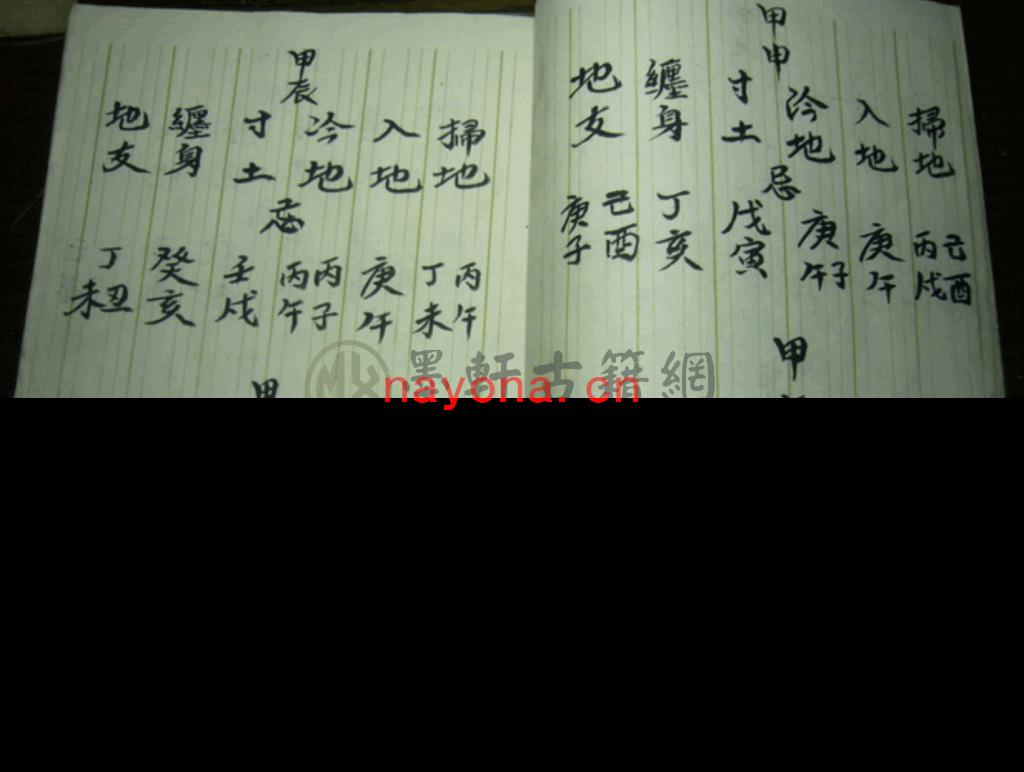 甲申
掃地 己酉 丙戌
入地 庚午
冷地 庚子午
忌
寸土 戊寅
纏身 丁亥
地支 己酉 庚子
甲
甲辰
掃地 丙午 丁未
入地 庚午
冷地 丙子 丙午
忌
寸土 壬戌
纏身 癸亥
地支 丁丑未
甲
墨軒古籍網
nayona.cn